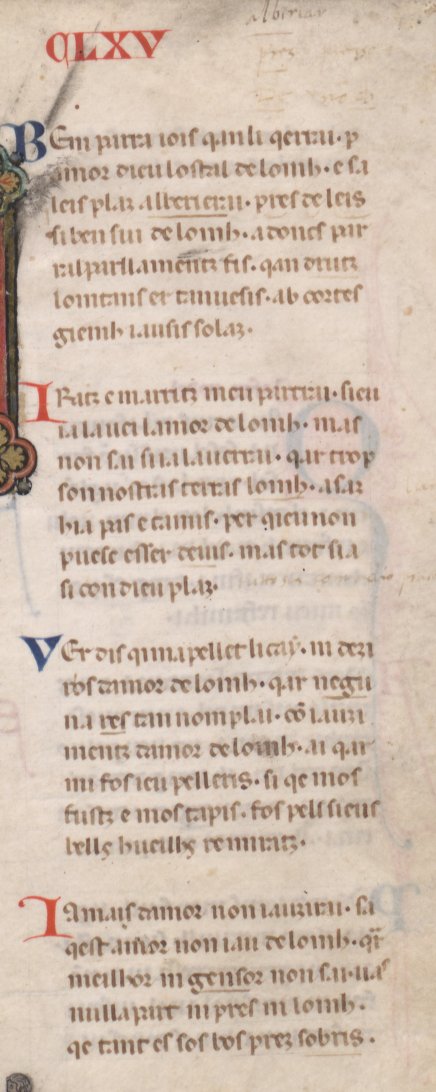 CLXV
alberiar
BEm parra iois qan li qerrai · p
amor dieu lostal de loinh · e sa
leis plaz alberierai · pres de leis
si ben sui de loinh · adoncs par
ral parllamentz fis · qan drutz
lointans er tan uesis · ab cortes
gienh iausis solaz ·
IRatz e marritz men partrai · sieu
ia lauei lamor de loinh · mas
non sai si ia la uerrai · qar trop
son nostras terras loinh · asaz
hia pas e camis · per qieu non
puesc esser deuis · mas tot sia
si con dieu plaz ·
VEr dis qi mapellet lecay · ni dezi
ros damor de loinh · qar negu
na res tan nom plai · cō iauzi
mentz damor de loinh · ai qar
mi fos ieu pelleris · si qe mos
fustz e mos tapis · fos pels sieus
bells hueilhs remiratz ·
IAmais damor non iauzirai · sa
qest amor non iau de loinh · qar
meilhor ni gensor non sai · uas
nulla part ni pres ni loinh ·
qe tant es sos bos prez sobris ·